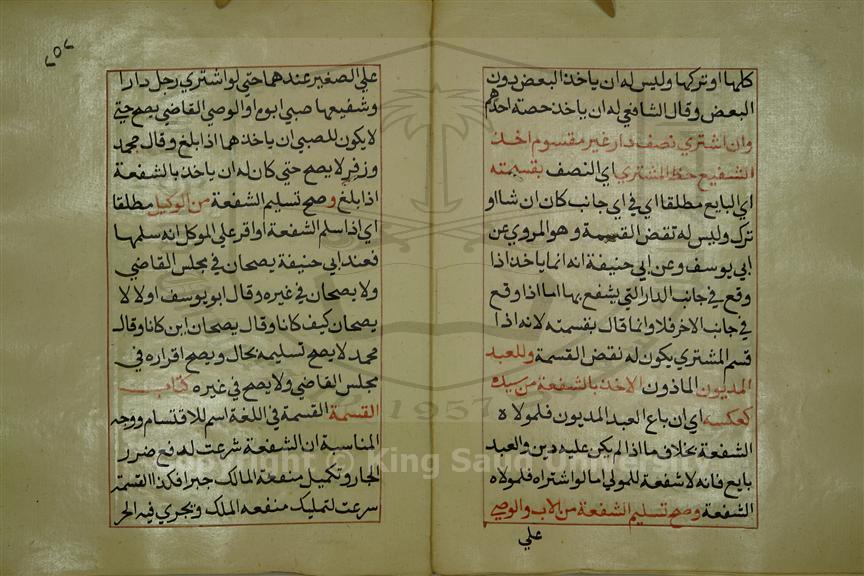 كلها او تركها وليس له ان ياخذ البعض دون
البعض وقال الشافعي له ان ياخذ حصة احدهم
وان اشتري نصف دار غير مقسوم اخذ
الشفيع حظ المشتري اي النصف بقسمته
اي البايع مطلقا اي في اي جانب كان ان شا او
ترك وليس له نقض القسمة وهو المروي عن
ابي يوسف وعن ابي حنيفة انه انما ياخذ اذا
وقع في جانب الدار التي يشفع بها اما اذا وقع
في جانب الاخر فلا وانما قال بقسمته لانه اذا
قسم المشتري يكون له نقض القسمة وللعبد
المديون الماذون الاخذ بالشفعة من سيده
كعكسه اي ان باع العبد المديون فلمولاه
الشفعة بخلاف ما اذا لم يكن عليه دين والعبد
بايع فانه لا شفعة للمولي اما لو اشتراه فلمولاه
الشفعة وصح تسليم الشفعة من الاب والوصي
علي
٢٥٢
علي الصغير عندهما حتي لو اشتري رجل دارا
وشفيعها صبي ابوه او الوصي القاضي يصح حتي
لا يكون للصبي ان ياخذها اذا بلغ وقال محمد
وزفر لا يصح حتي كان له ان ياخذ بالشفعة
اذا بلغ وصح تسليم الشفعة من الوكيل مطلقا
اي اذا سلم الشفعة او اقر علي الموكل انه سلمها
فعند ابي حنيفة يصحان في مجلس القاضي
ولا يصحان في غيره وقال ابو يوسف اولا لا
يصحان كيف كانا وقال يصحان اين كانا وقال
محمد لا يصح تسليمه بحال ويصح اقراره في
مجلس القاضي ولا يصح في غيره كتاب
القسمة القسمة في اللغة اسم للاقتسام ووجه
المناسبة ان الشفعة شرعت لدفع ضرر
الجار وتكميل منفعة المالك جبرا فكذا القسمة
شرعت لتمليك منفعه الملك ويجري فيه الجر
Copyright © King Saud University
1957